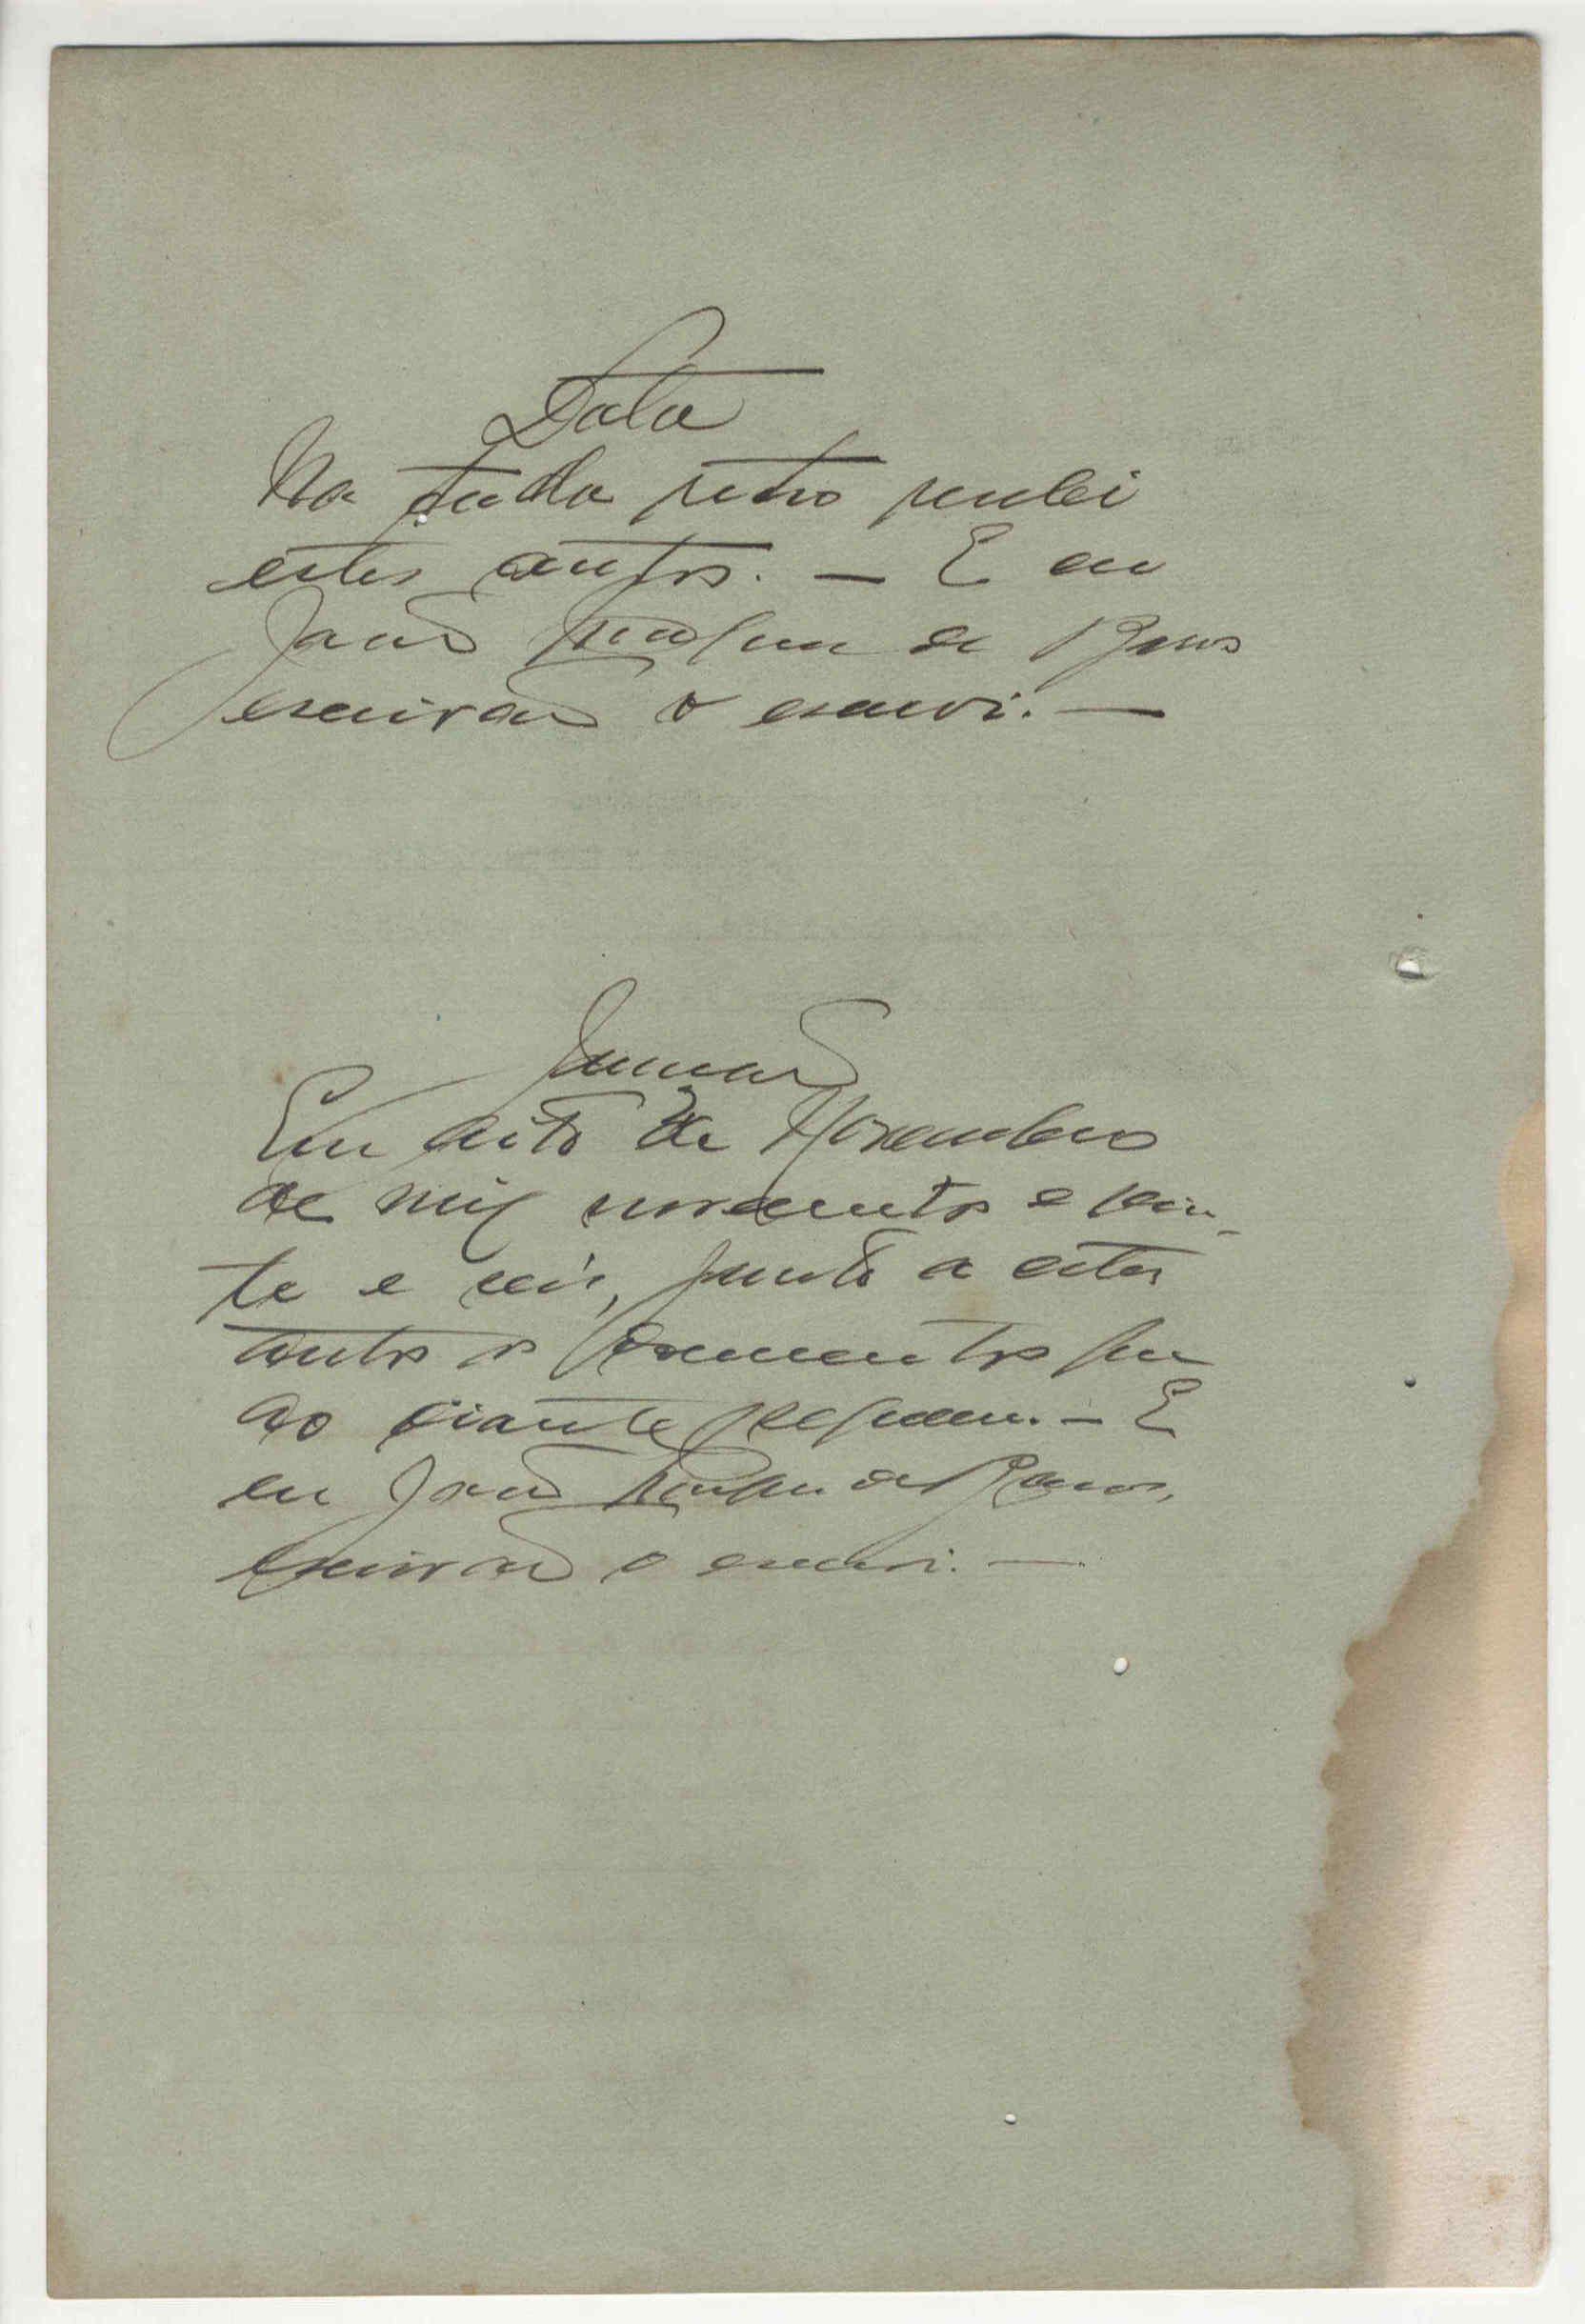 Data
Na data retro recebi
estes autos. — E eu
João de Barros
escrivão o escrevi. —
Juntada
Em oito de Novembro
de mil novecentos e vin-
te e seis, junto a estes
autos os documentos que
ao diante seguem. — E
eu João de Barros,
escrivão o escrevi. —